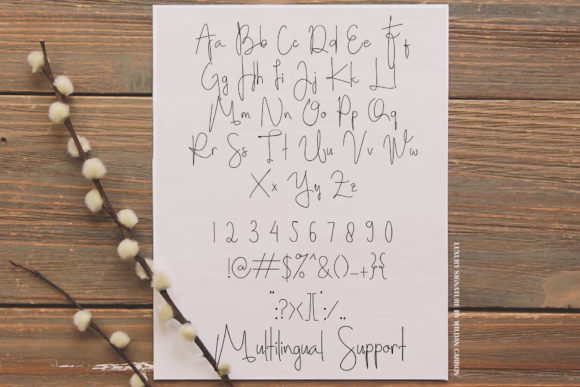 Aa Bb Cc Dd Ee Ff
Gg Hh Ii Jj Kk Ll
Mm Nn Oo Pp Qq
Rr Ss Tt Uu Vv Ww
Xx Yy Zz
1 2 3 4 5 6 7 8 9 0
!@#$%^&()_+}{
":?><][';/..
Multilingual Support
LUXURY SIGNATURE BY WILDAN CARBON